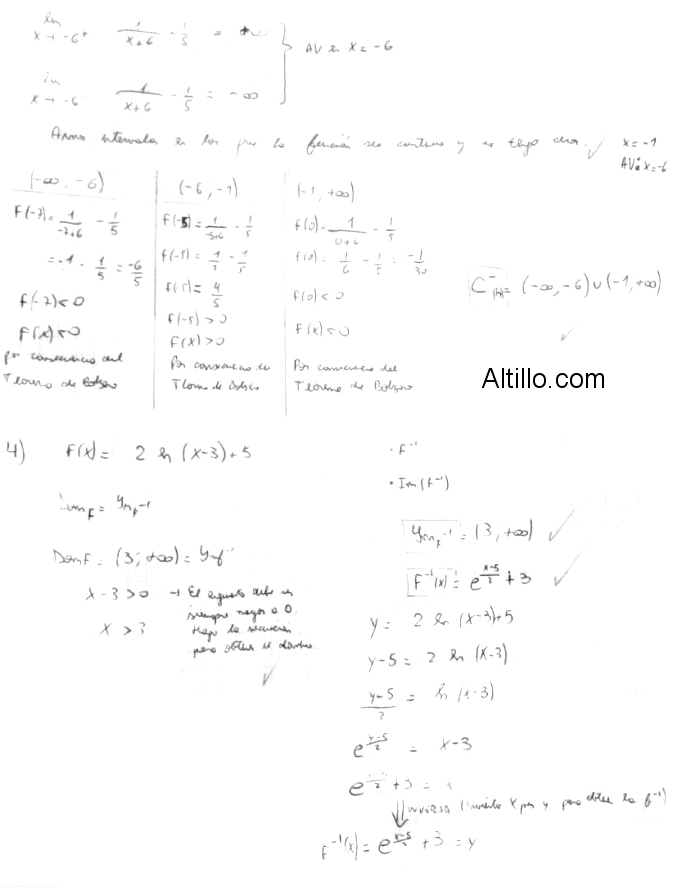 lim x→-6⁺ 1/(x+6) - 1/5 = +∞
AV en x = -6
lim x→-6⁻ 1/(x+6) - 1/5 = -∞
Armo intervalos en los que la función sea continua y no tenga ceros. ✓ x = -1
AV: x = -6
(-∞, -6)
F(-7) = 1/(-7+6) - 1/5
= -1 - 1/5 = -6/5
F(-7) < 0
F(x) < 0
por consecuencia del
Teorema de Bolzano
(-6, -1)
F(-5) = 1/(-5+6) - 1/5
F(-5) = 1/1 - 1/5
F(-5) = 4/5
F(-5) > 0
F(x) > 0
Por consecuencia del
Teorema de Bolzano
(-1, +∞)
F(0) = 1/(0+6) - 1/5
F(0) = 1/6 - 1/5 = -1/30
F(0) < 0
F(x) < 0
Por consecuencia del
Teorema de Bolzano
C⁻ = (-∞, -6) ∪ (-1, +∞)
✓
Altillo.com
4) F(x) = 2 ln (x-3) + 5
Dom F = Im F⁻¹
Dom F = (3; +∞) = Im F⁻¹
x - 3 > 0 → El argumento debe ser
siempre mayor a 0.
Hago la
para obtener el dominio
x > 3
✓
· F⁻¹
· Im (F⁻¹)
Im F⁻¹ = (3, +∞) ✓
F⁻¹(x) = e^((x-5)/2) + 3 ✓
y = 2 ln (x-3) + 5
y - 5 = 2 ln (x-3)
(y-5)/2 = ln (x-3)
e^((y-5)/2) = x - 3
e^((y-5)/2) + 3 = x
⇓ INVERSA (invierto x por y para obtener la F⁻¹)
F⁻¹(x) = e^((x-5)/2) + 3 = y